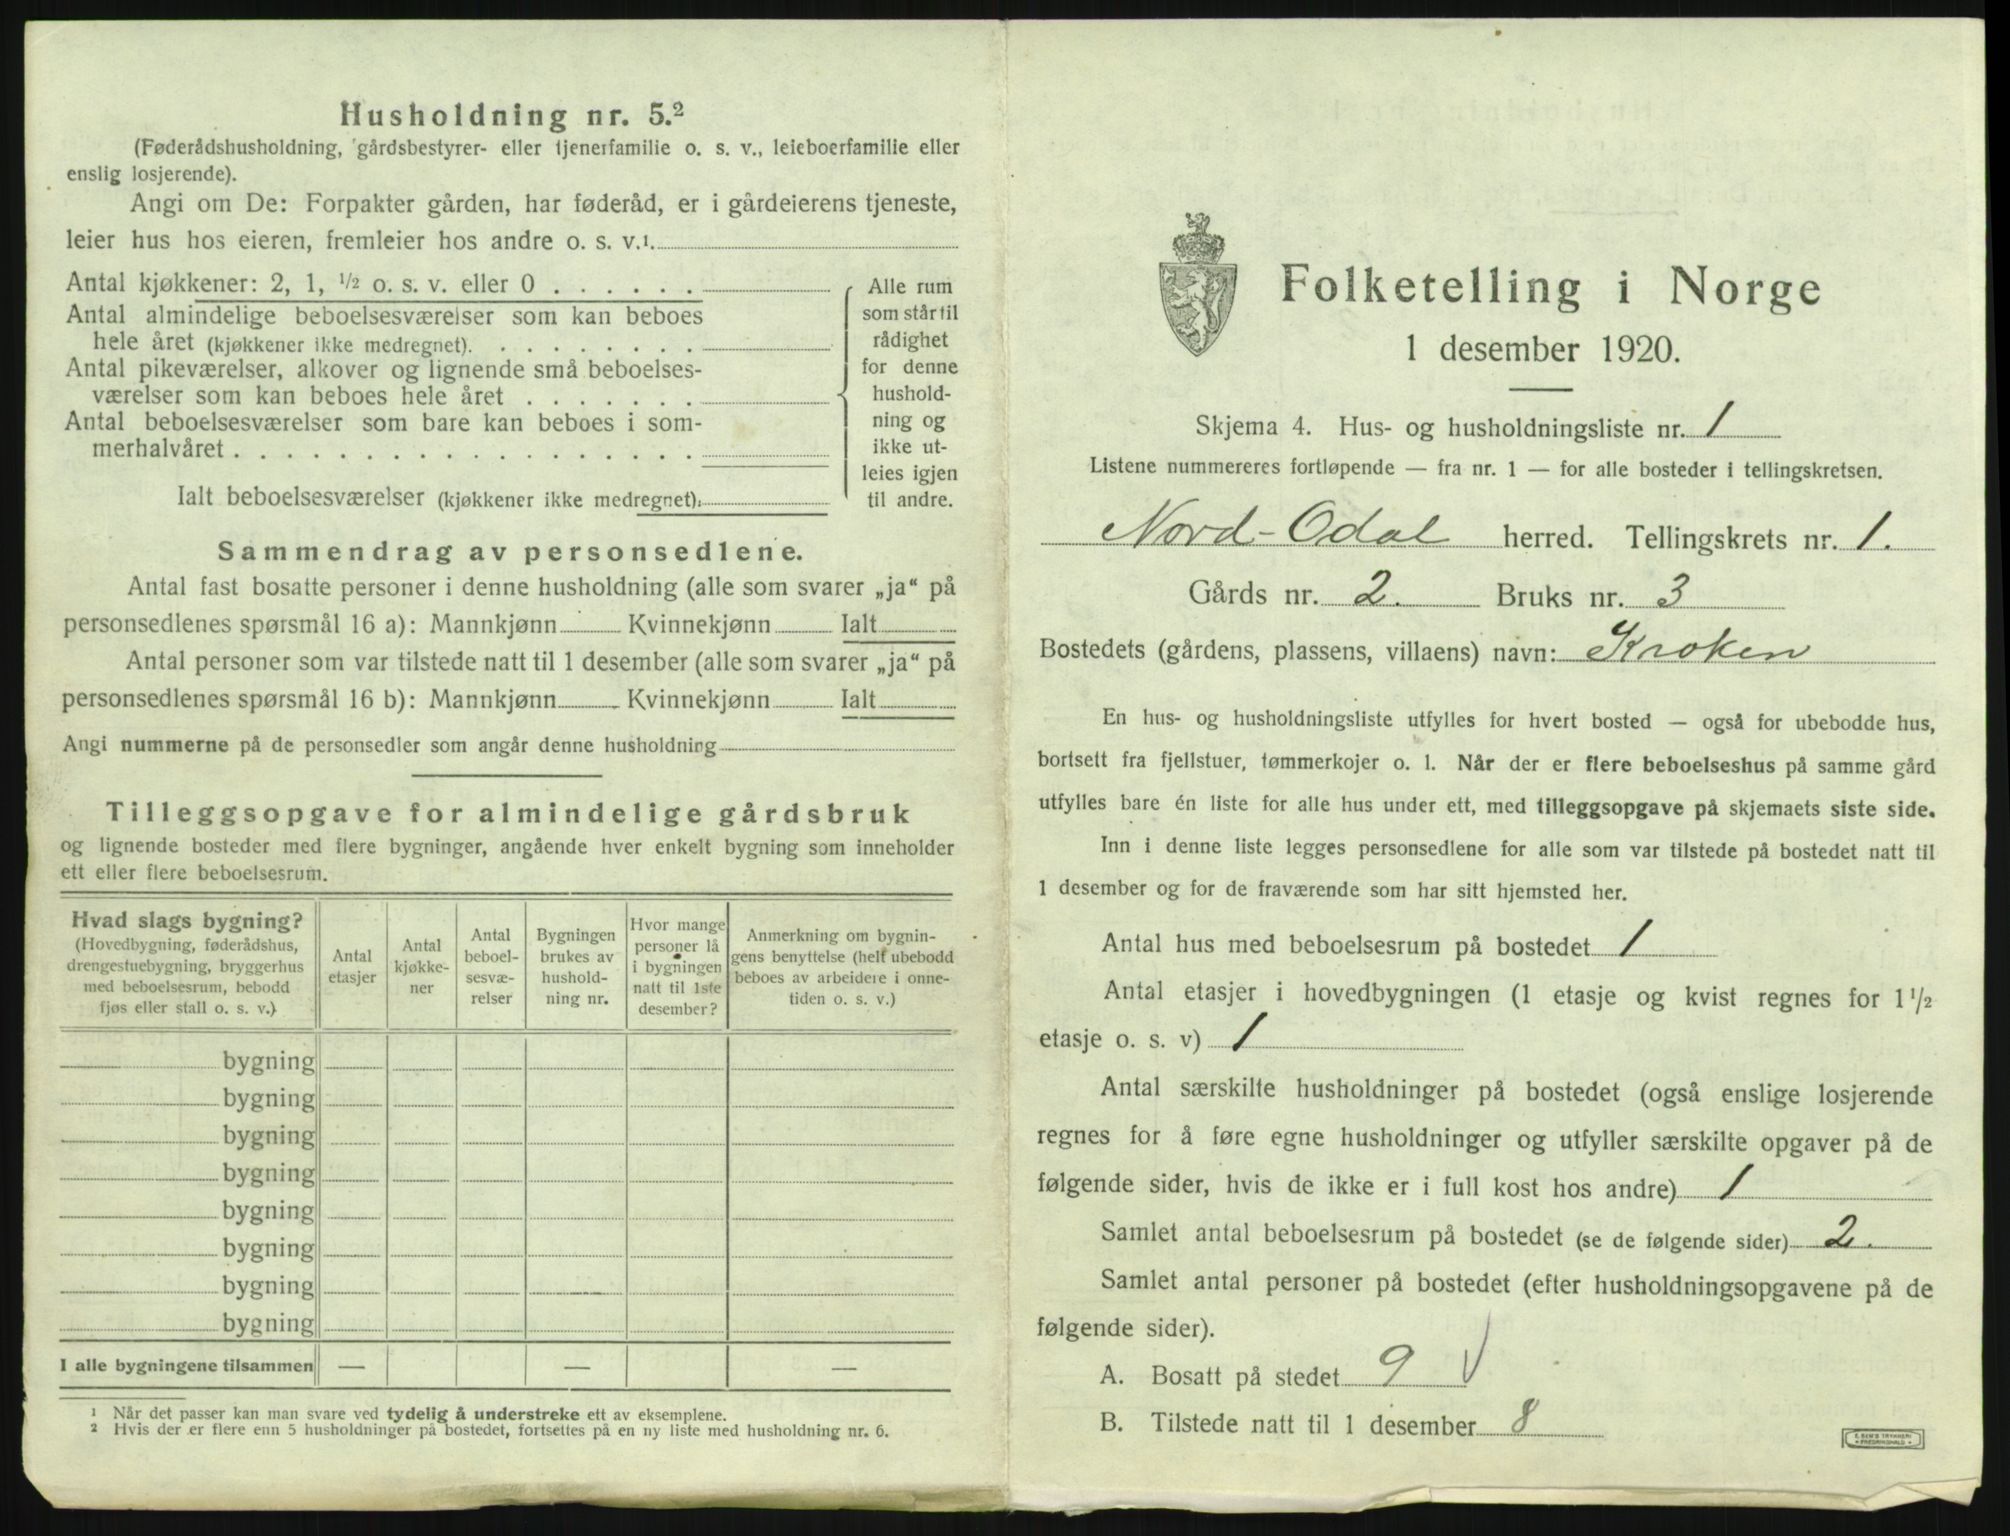 Husholdning nr. 5.²
(Føderådshusholdning, gårdsbestyrer- eller tjenerfamilie o. s. v., leieboerfamilie eller
enslig losjerende).
Angi om De: Forpakter gården, har føderåd, er i gårdeierens tjeneste,
leier hus hos eieren, fremleier hos andre o. s. v.¹
Antal kjøkkener: 2, 1, ½ o. s. v. eller 0
Antal almindelige beboelsesværelser som kan beboes
hele året (kjøkkener ikke medregnet).
Antal pikeværelser, alkover og lignende små beboelses-
værelser som kan beboes hele året
Antal beboelsesværelser som bare kan beboes i som-
merhalvåret
Ialt beboelsesværelser (kjøkkener ikke medregnet):
Alle rum
som står til
rådighet
for denne
hushold-
ning og
ikke ut-
leies igjen
til andre.
Sammendrag av personsedlene.
Antal fast bosatte personer i denne husholdning (alle som svarer „ja“ på
personsedlenes spørsmål 16 a): Mannkjønn Kvinnekjønn Ialt
Antal personer som var tilstede natt til 1 desember (alle som svarer „ja“ på
personsedlenes spørsmål 16 b): Mannkjønn Kvinnekjønn Ialt
Angi nummerne på de personsedler som angår denne husholdning
Tilleggsopgave for almindelige gårdsbruk
og lignende bosteder med flere bygninger, angående hver enkelt bygning som inneholder
ett eller flere beboelsesrum.
Hvad slags bygning?
(Hovedbygning, føderådshus,
drengestuebygning, bryggerhus
med beboelsesrum, bebodd
fjøs eller stall o. s. v.)
Antal
etasjer
Antal
kjøkke-
ner
Antal
beboel-
sesvæ-
relser
Bygningen
brukes av
hushold-
ning nr.
Hvor mange
personer lå
i bygningen
natt til 1ste
desember?
Anmerkning om bygnin-
gens benyttelse (helt ubebodd
beboes av arbeidere i onne-
tiden o. s. v.)
bygning
bygning
bygning
bygning
bygning
bygning
bygning
bygning
I alle bygningene tilsammen — — —
¹ Når det passer kan man svare ved tydelig å understreke ett av eksemplene.
² Hvis der er flere enn 5 husholdninger på bostedet, fortsettes på en ny liste med husholdning nr. 6.
Folketelling i Norge
1 desember 1920.
Skjema 4. Hus- og husholdningsliste nr. 1
Listene nummereres fortløpende — fra nr. 1 — for alle bosteder i tellingskretsen.
Nord-Odal herred. Tellingskrets nr. 1.
Gårds nr. 2. Bruks nr. 3
Bostedets (gårdens, plassens, villaens) navn: Kroken
En hus- og husholdningsliste utfylles for hvert bosted — også for ubebodde hus,
bortsett fra fjellstuer, tømmerkojer o. l. Når der er flere beboelseshus på samme gård
utfylles bare én liste for alle hus under ett, med tilleggsopgave på skjemaets siste side.
Inn i denne liste legges personsedlene for alle som var tilstede på bostedet natt til
1 desember og for de fraværende som har sitt hjemsted her.
Antal hus med beboelsesrum på bostedet 1
Antal etasjer i hovedbygningen (1 etasje og kvist regnes for 1 ½
etasje o. s. v) 1
Antal særskilte husholdninger på bostedet (også enslige losjerende
regnes for å føre egne husholdninger og utfyller særskilte opgaver på de
følgende sider, hvis de ikke er i full kost hos andre) 1
Samlet antal beboelsesrum på bostedet (se de følgende sider) 2.
Samlet antal personer på bostedet (efter husholdningsopgavene på de
følgende sider).
A. Bosatt på stedet 9 √
B. Tilstede natt til 1 desember 8